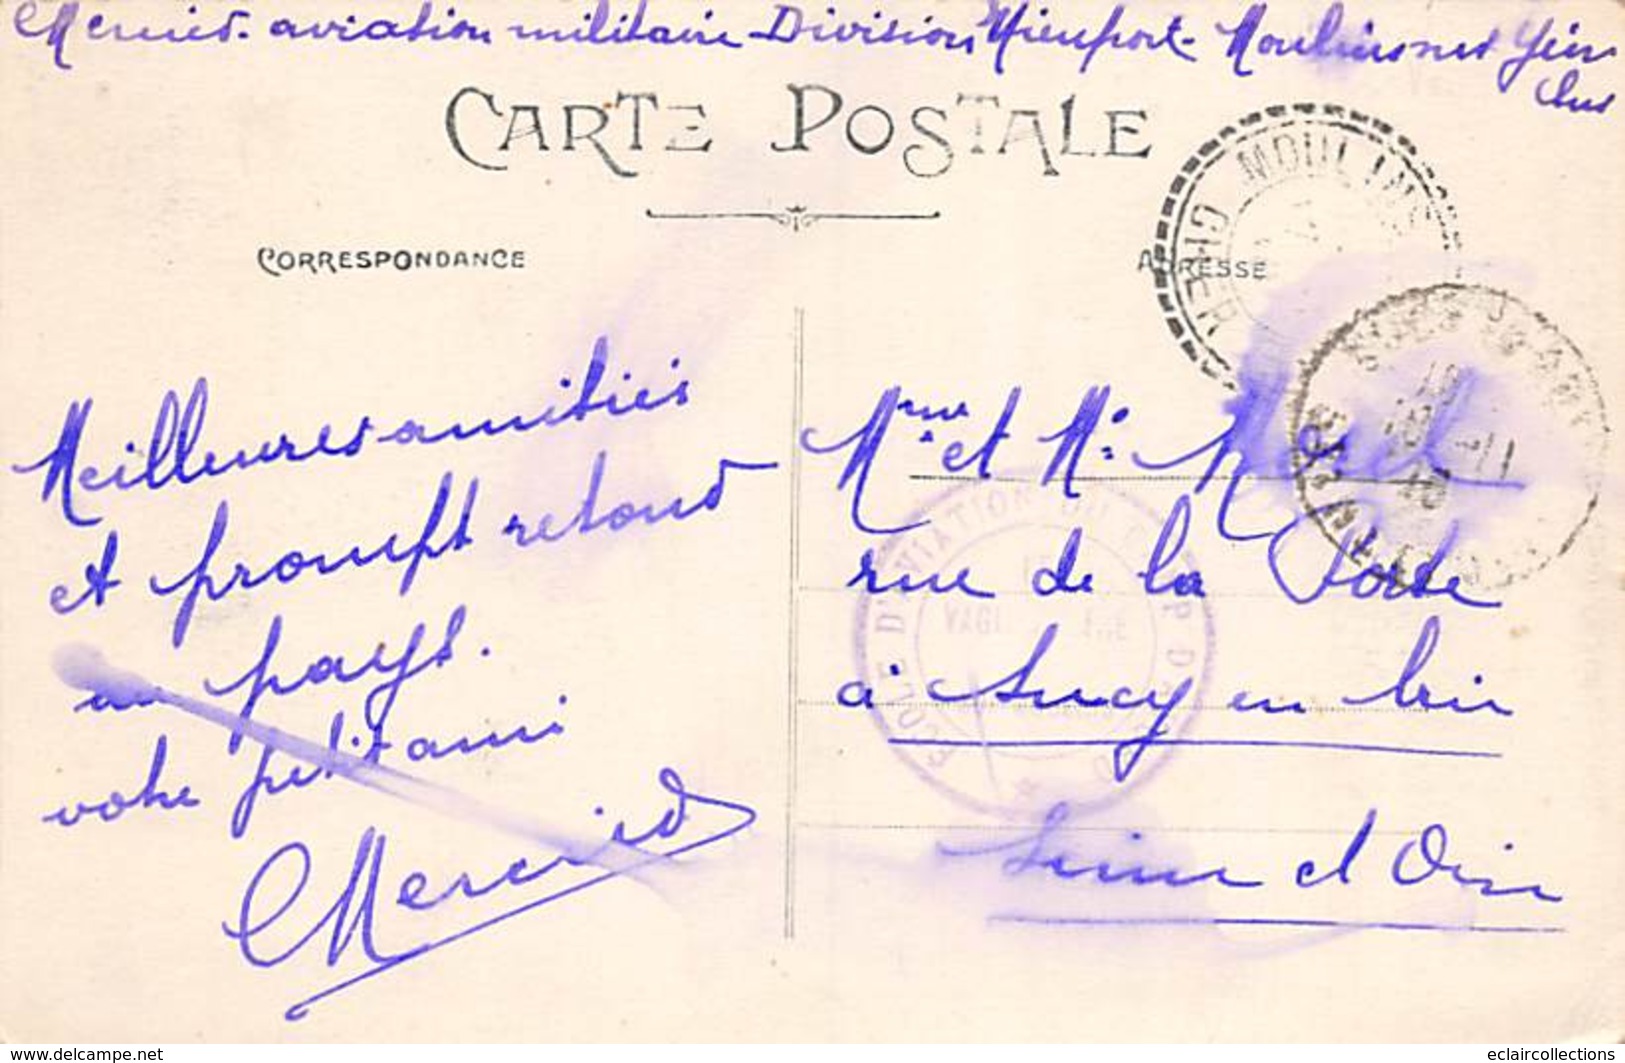 Mercier. aviation militaire Division Nieuport - Moulins sur Yèvre
Cher
CARTE POSTALE
CORRESPONDANCE
ADRESSE
MOULINS
CHER
Meilleures amitiés
et prompt retour
au pays.
votre petit ami
Mercier
Mme et Mr Morel
rue de la Porte
à Sucy en brie
Seine et Oise
ECOLE D'AVIATION DU CAMP D'AVORD
www.delcampe.net
eclaircollections